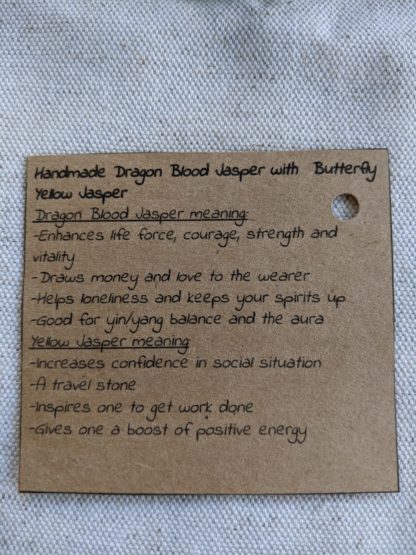 Handmade Dragon Blood Jasper with Butterfly
Yellow Jasper
Dragon Blood Jasper meaning:
-Enhances life force, courage, strength and
vitality
-Draws money and love to the wearer
-Helps loneliness and keeps your spirits up
-Good for yin/yang balance and the aura
Yellow Jasper meaning:
-Increases confidence in social situation
-A travel stone
-Inspires one to get work done
-Gives one a boost of positive energy